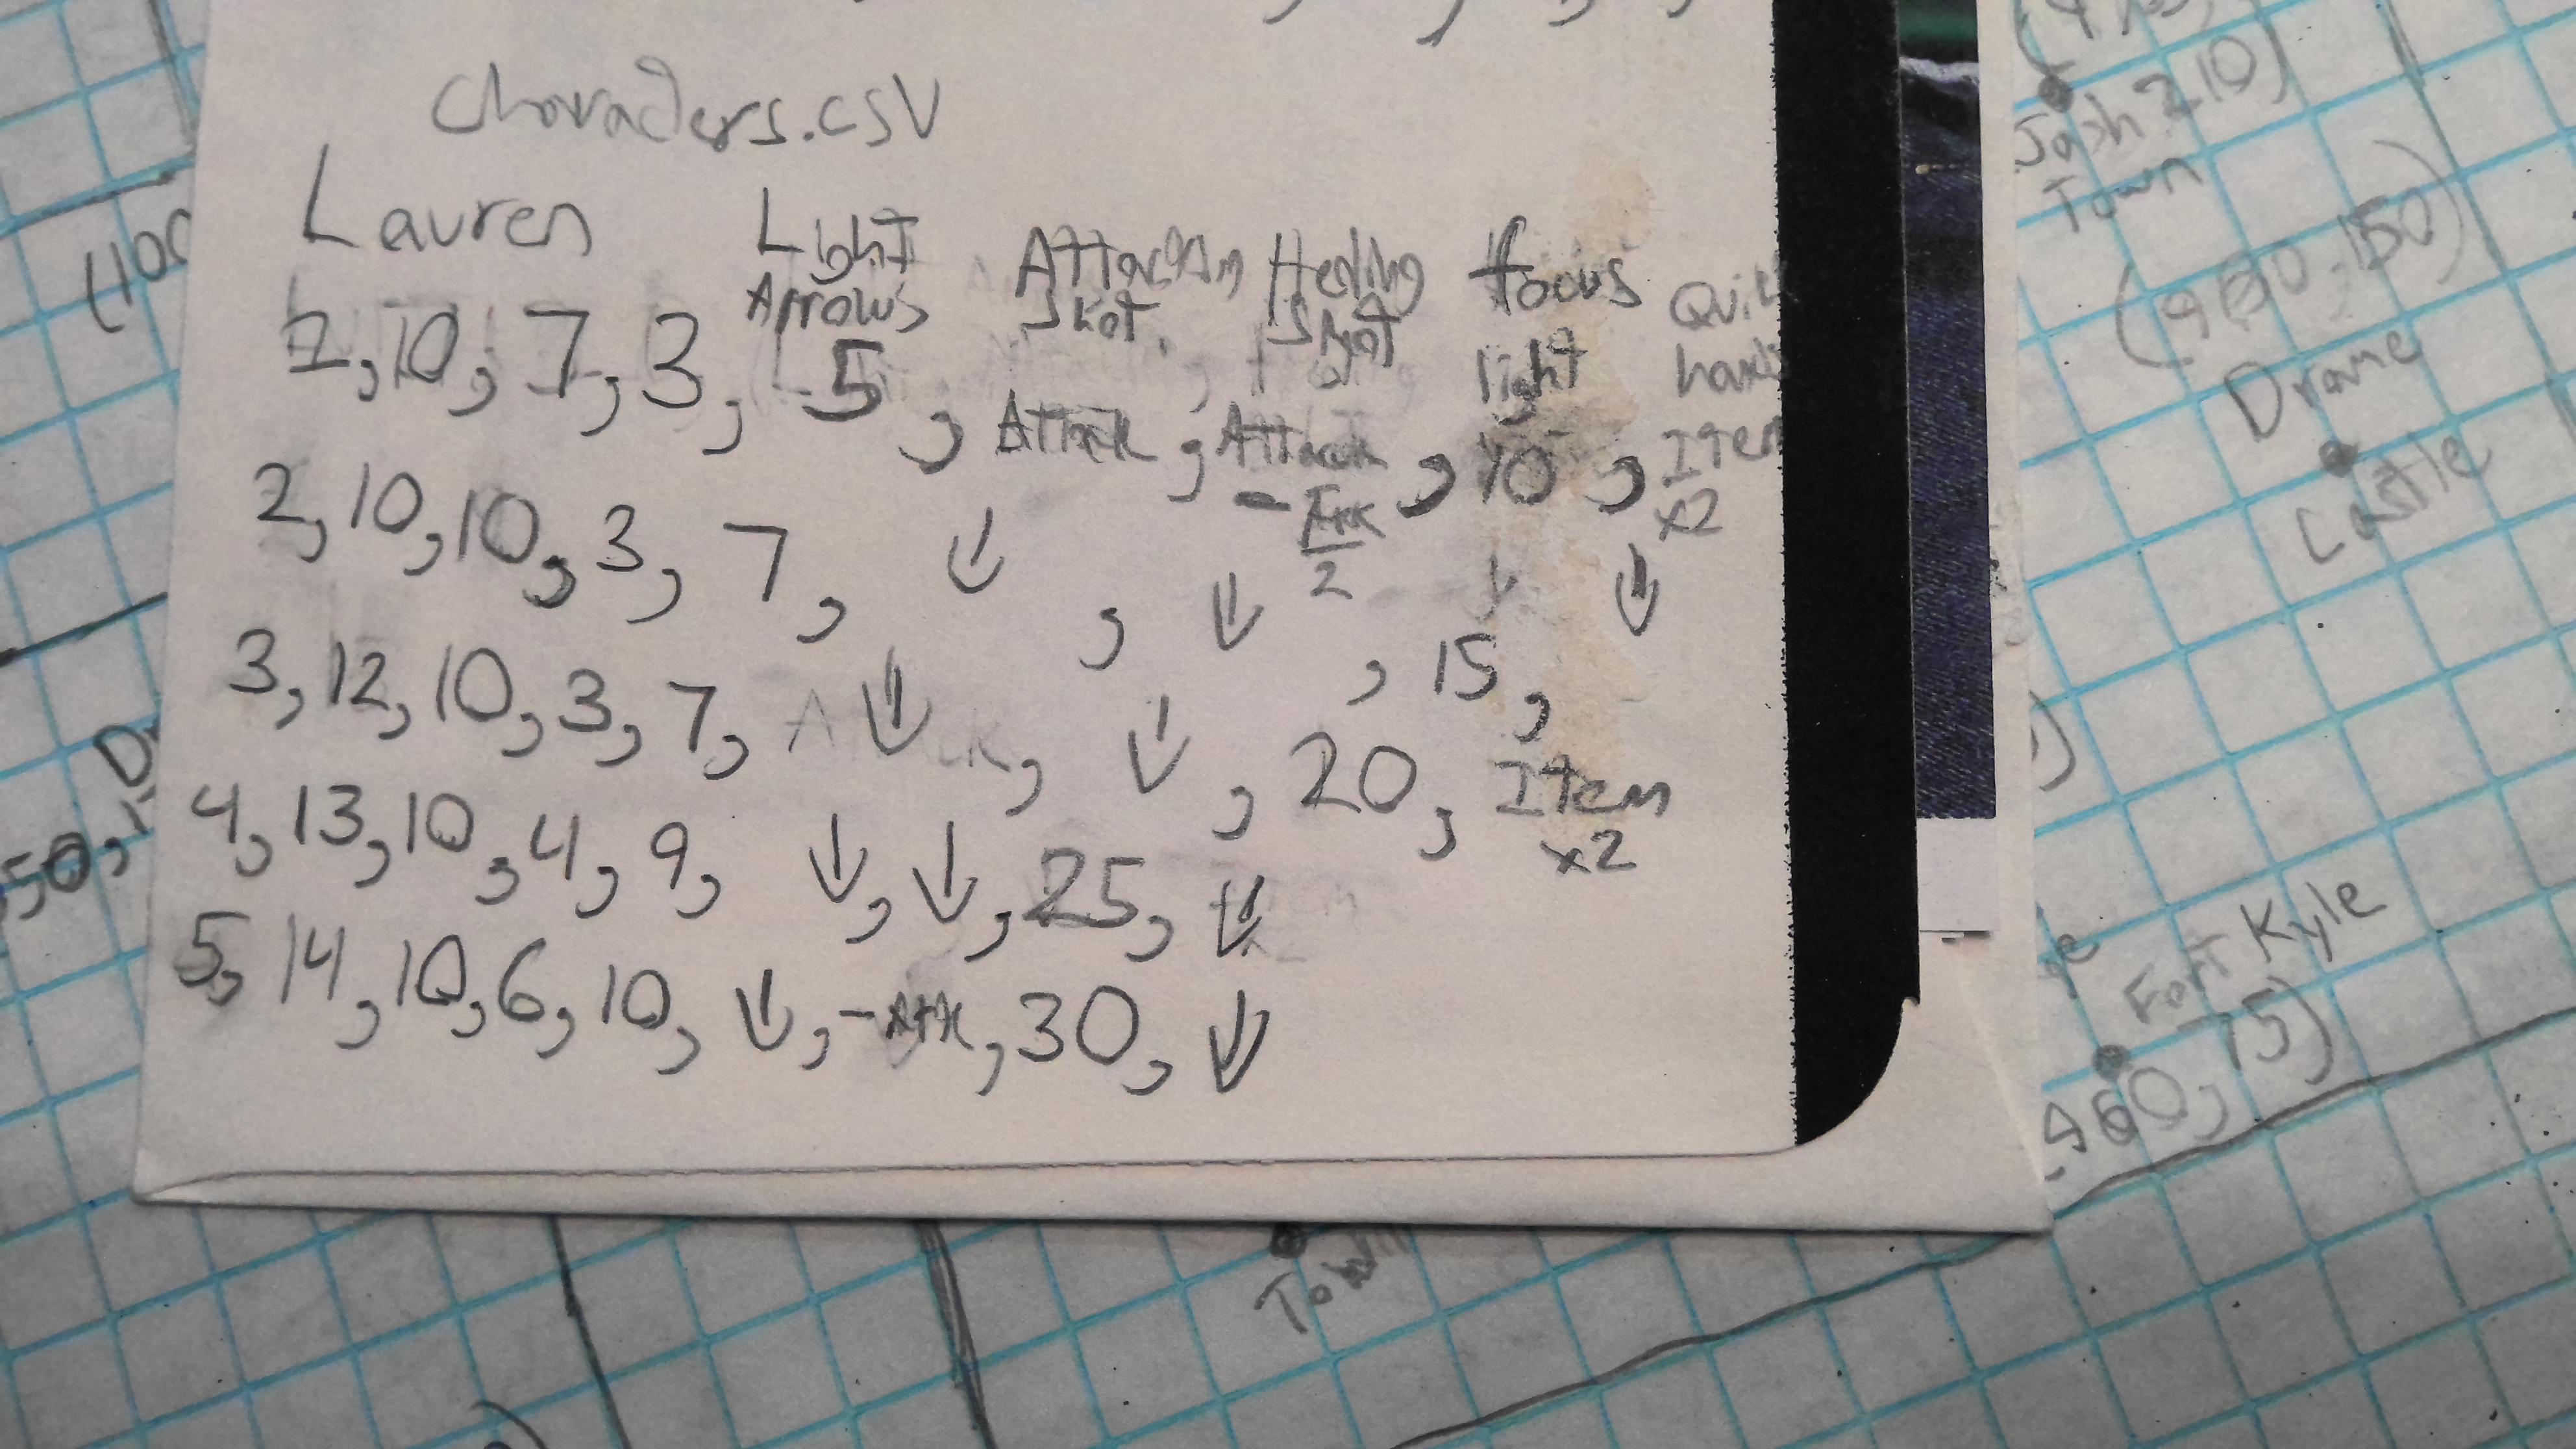 characters.csv
Lauren Light Arrows Attacking Shot Healing Shot focus light Quic hands
1, 10, 7, 3, 5, Attack, Attack - Atk/2, 10, Item x2
2, 10, 10, 3, 7, ↓, ↓, 15, ↓
3, 12, 10, 3, 7, ↓, ↓, 20, Item x2
4, 13, 10, 4, 9, ↓, ↓, 25, ↓
5, 14, 10, 6, 10, ↓, -Atk, 30, ↓
(100
50,
Josh
Town
210)
150)
Drame
Castle
Fort Kyle
460, 75)
Town